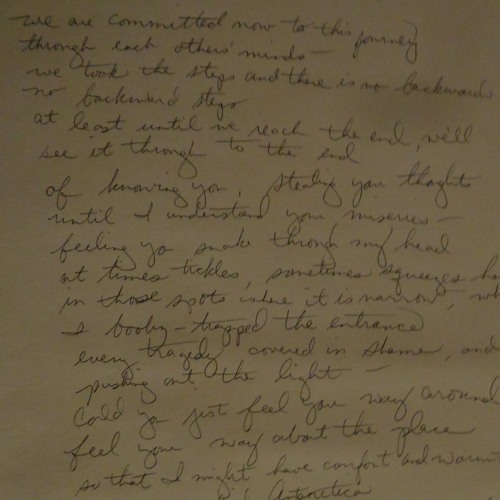 we are committed now to this journey
through each others' minds —
we took the steps and there is no backwards
no backward steps
at least until we reach the end, we'll
see it through to the end
of knowing you, stealing your thoughts
until I understand your miseries —
feeling you snake through my head
at times tickles, sometimes squeezes
in those spots where it is narrow,
I booby-trapped the entrance
every tragedy covered in shame, and
pushing out the light —
could you just feel your way around
feel your way about the place
so that I might have comfort and warmth
Antarctica